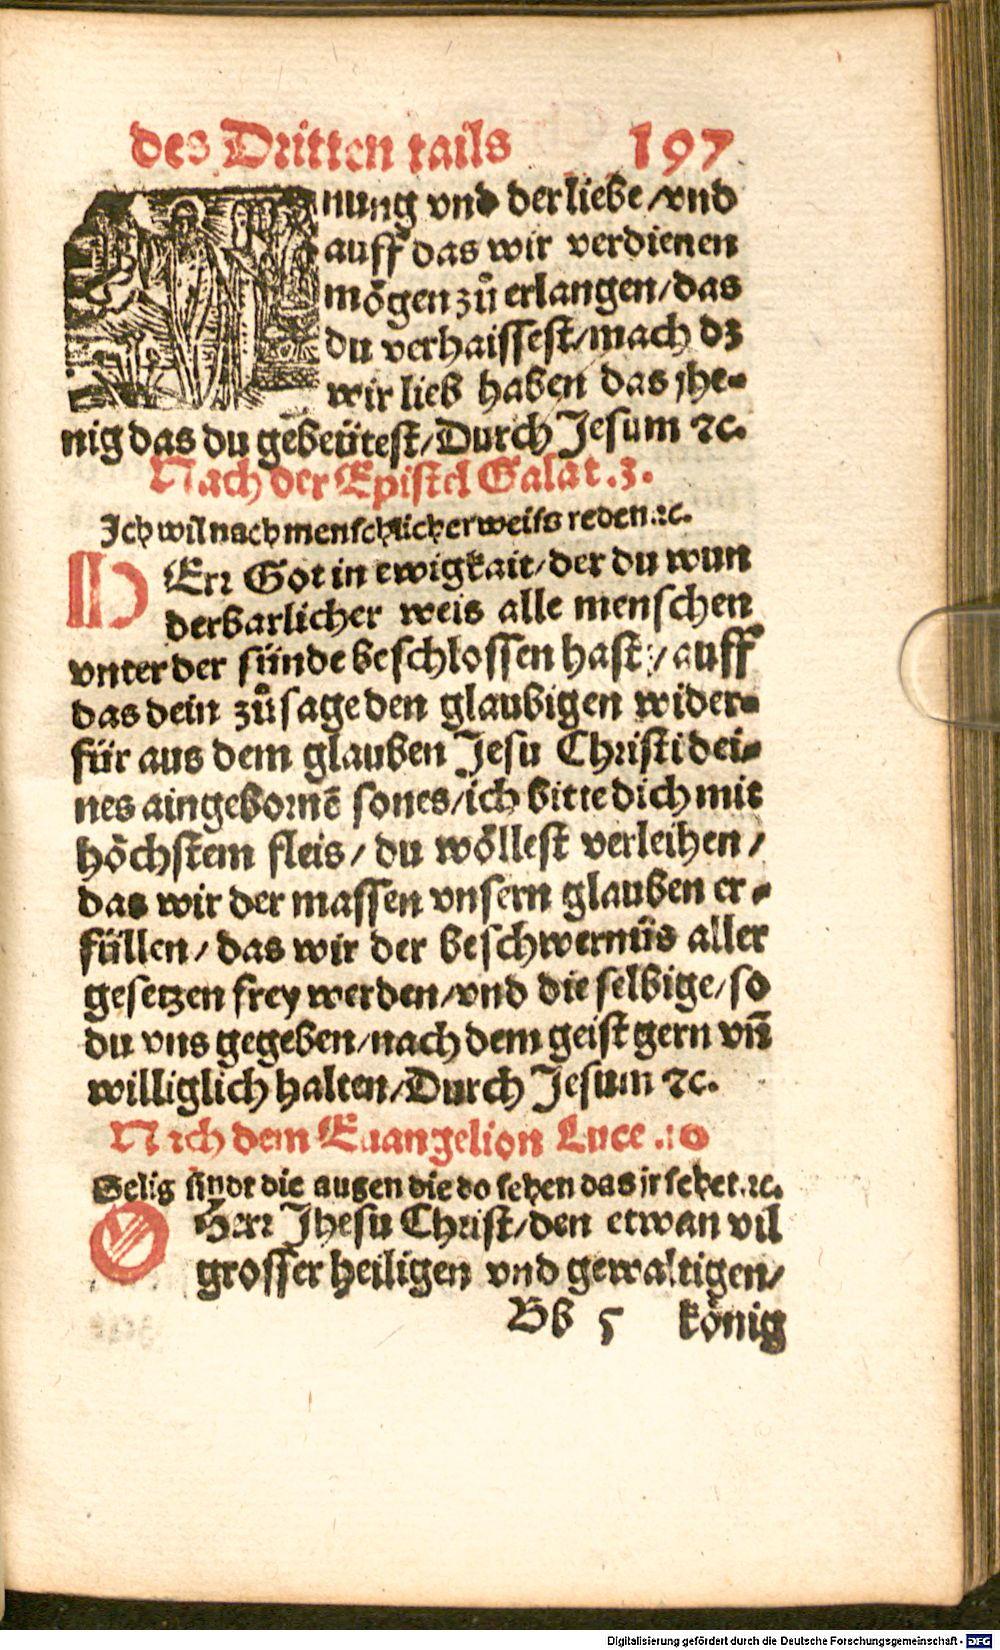 des Dritten tails 197
nung vnd der liebe/vnd
auff das wir verdienen
mögen zů erlangen/das
du verhaissest/mach dz
wir lieb haben das jhe-
nig das du gebeütest/Durch Jesum ꝛc.
Nach der Epistel Galat.3.
Ich wil nach menschlicher weiss reden.ꝛc.
HErr Got in ewigkait/der du wun
derbarlicher weis alle menschen
vnter der sünde beschlossen hast/auff
das dein zůsage den glaubigen wider-
für aus dem glauben Jesu Christi dei-
nes aingebornē sones/ich bitte dich mit
höchstem fleis/du wöllest verleihen/
das wir der massen vnsern glauben er-
füllen/das wir der beschwernüs aller
gesetzen frey werden/vnd die selbige/so
du vns gegeben/nach dem geist gern vn̄
williglich halten/Durch Jesum ꝛc.
Nach dem Euangelion Luce .10
Selig sindt die augen die do sehen das jr sehet.ꝛc.
O Herr Jhesu Christ/den etwan vil
grosser heiligen vnd gewaltigen/
Bb 5 könig
Digitalisierung gefördert durch die Deutsche Forschungsgemeinschaft - DFG